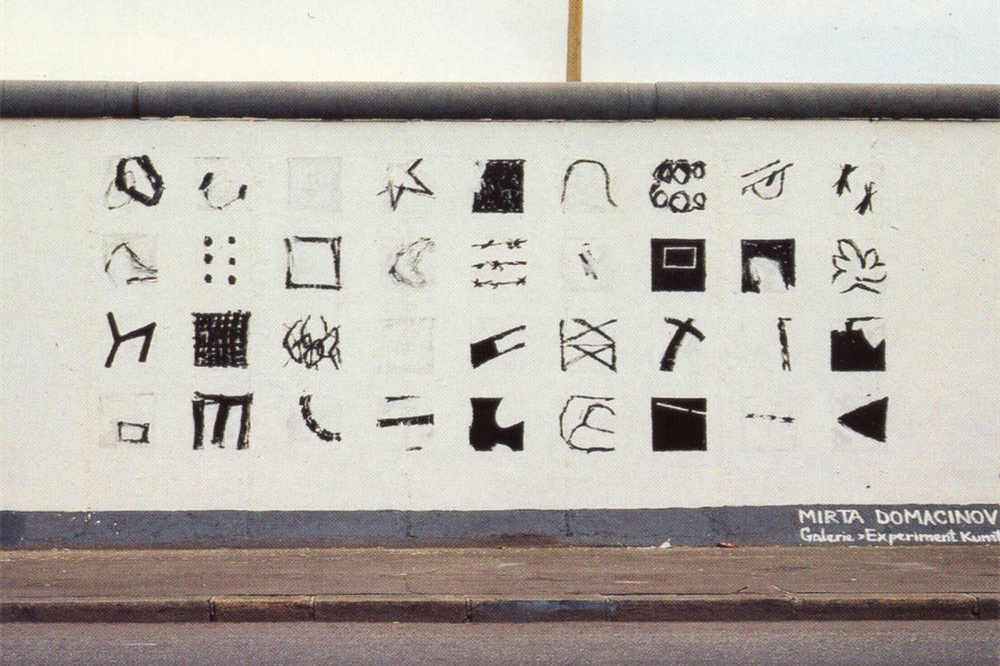 MIRTA DOMACINOV
Galerie >Experiment Kunst